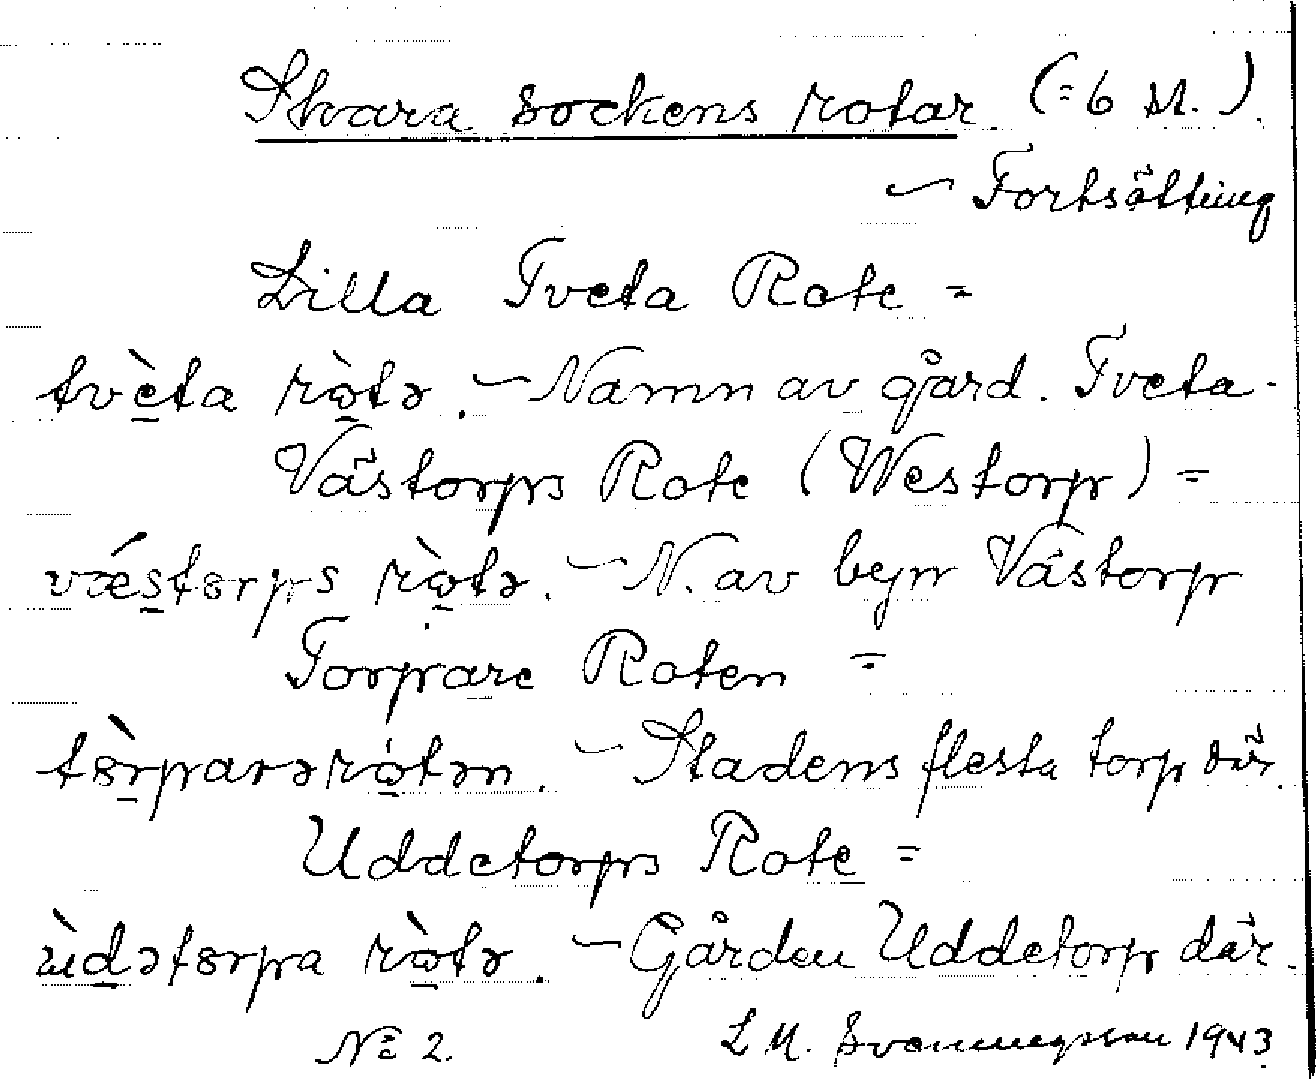 Skara sockens rotar (= 6 st.).
— Fortsättning
Lilla Tveta Rote =
tvèta rò̱tə. — Namn av gård. Tveta.
Västorps Rote (Westorp) =
vǽstɵrps rò̱tə. — N. av byn Västorp
Torpare Roten =
tɵ̀rparərò̱tən. — Stadens flesta torp där.
Uddetorps Rote =
ùdətɵrpa rò̱tə. — Gården Uddetorp där.
No 2. L M. Svenningsson 1943